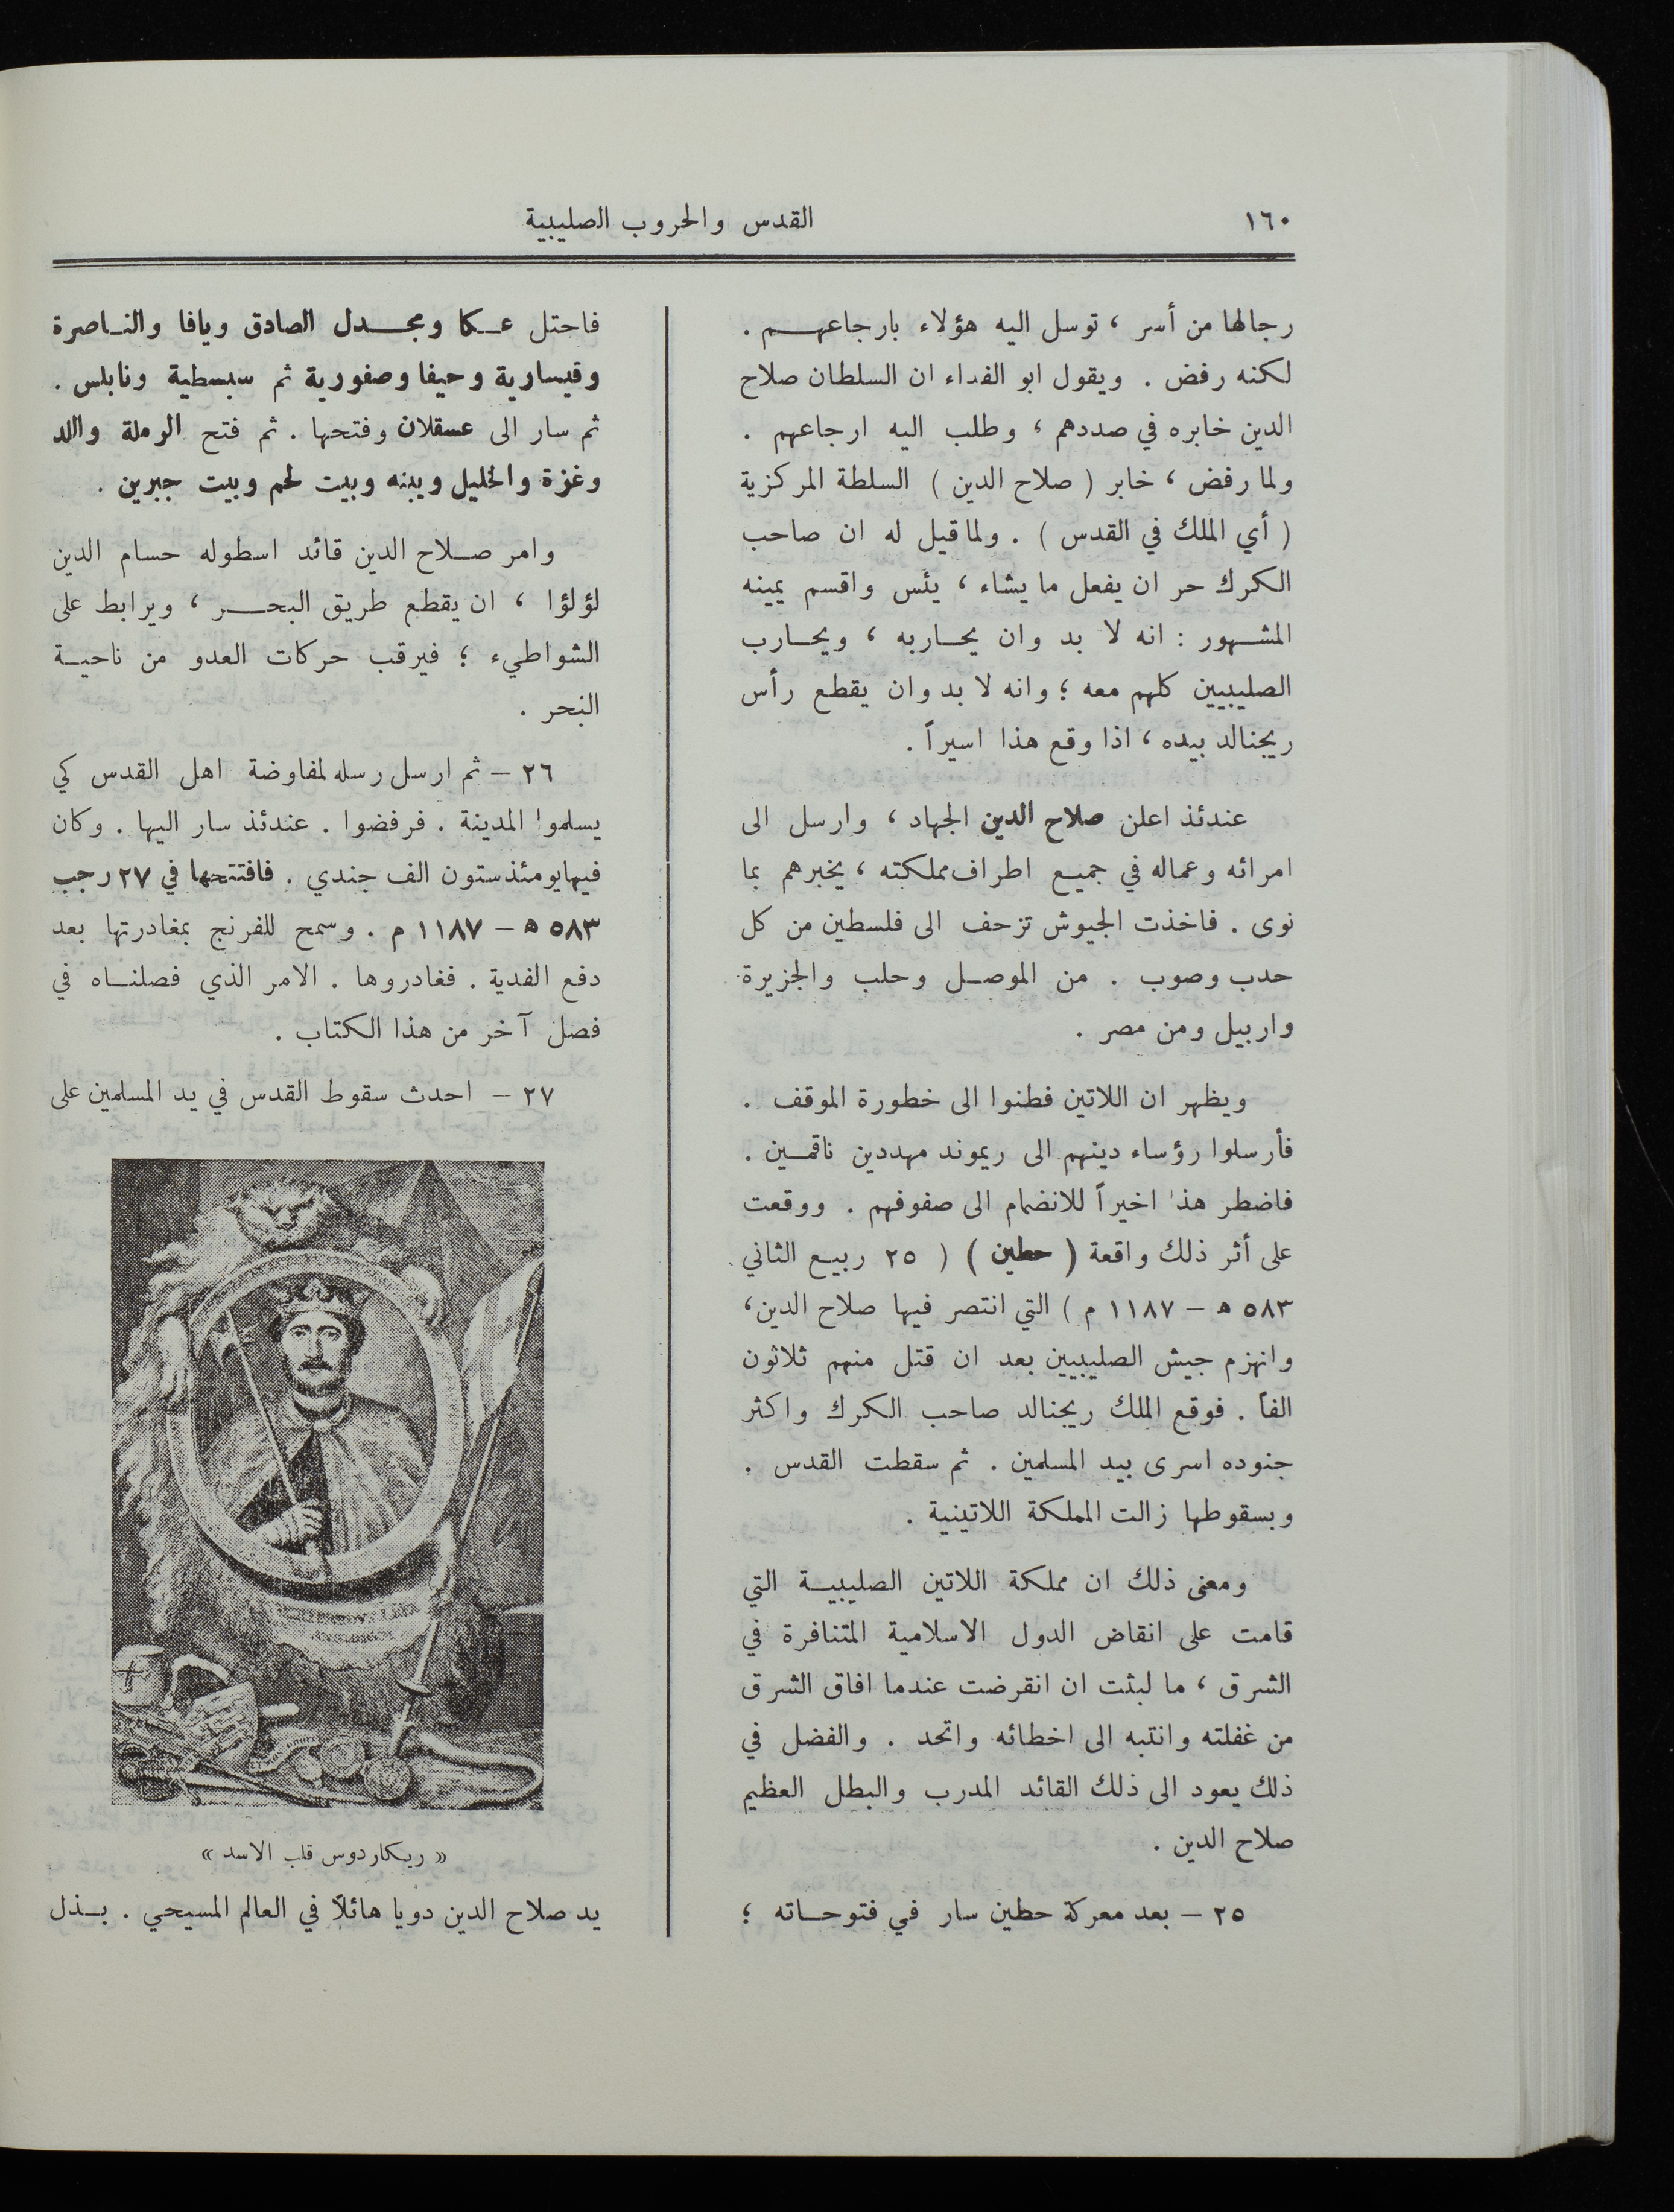 ١٦٠
القدس والحروب الصليبية
رجالها من أسر ، توسل اليه هؤلاء بارجاعهم .
لكنه رفض . ويقول ابو الفداء ان السلطان صلاح
الدين خابره في صددهم ، وطلب اليه ارجاعهم .
ولما رفض ، خابر ( صلاح الدين ) السلطة المركزية
( أي الملك في القدس ) . ولما قيل له ان صاحب
الكرك حر ان يفعل ما يشاء ، يئس واقسم يمينه
المشهور : انه لا بد وان يحاربه ، ويحارب
الصليبيين كلهم معه ؛ وانه لا بد وان يقطع رأس
ريجنالد بيده ، اذا وقع هذا اسيراً .
عندئذ اعلن صلاح الدين الجهاد ، وارسل الى
امرائه وعماله في جميع اطراف مملكته ، يخبرهم بما
نوى . فاخذت الجيوش تزحف الى فلسطين من كل
حدب وصوب . من الموصل وحلب والجزيرة
واربيل ومن مصر .
ويظهر ان اللاتين فطنوا الى خطورة الموقف .
فأرسلوا رؤساء دينهم الى ريموند مهددين ناقمين .
فاضطر هذا اخيراً للانضمام الى صفوفهم . ووقعت
على أثر ذلك واقعة ( حطين ) ( ٢٥ ربيع الثاني
٥٨٣ ه – ١١٨٧ م ) التي انتصر فيها صلاح الدين ،
وانهزم جيش الصليبيين بعد ان قتل منهم ثلاثون
الفاً . فوقع الملك ريجنالد صاحب الكرك واكثر
جنوده اسرى بيد المسلمين . ثم سقطت القدس .
وبسقوطها زالت المملكة اللاتينية .
ومعنى ذلك ان مملكة اللاتين الصليبية التي
قامت على انقاض الدول الاسلامية المتنافرة في
الشرق ، ما لبثت ان انقرضت عندما افاق الشرق
من غفلته وانتبه الى اخطائه واتحد . والفضل في
ذلك يعود الى ذلك القائد المدرب والبطل العظيم
صلاح الدين .
٢٥ – بعد معركة حطين سار في فتوحاته ؛
فاحتل عكا ومجدل الصادق ويافا والناصرة
وقيسارية وحيفا وصفورية ثم سبسطية ونابلس .
ثم سار الى عسقلان وفتحها . ثم فتح الرملة واللد
وغزة والخليل ويبنه وبيت لحم وبيت جبرين .
وامر صلاح الدين قائد اسطوله حسام الدين
لؤلؤا ، ان يقطع طريق البحر ، ويرابط على
الشواطيء ؛ فيرقب حركات العدو من ناحية
البحر .
٢٦ – ثم ارسل رسله لمفاوضة اهل القدس كي
يسلموا المدينة . فرفضوا . عندئذ سار اليها . وكان
فيها يومئذ ستون الف جندي . فافتتحها في ٢٧ رجب
٥٨٣ ه – ١١٨٧ م . وسمح للفرنج بمغادرتها بعد
دفع الفدية . فغادروها . الامر الذي فصلناه في
فصل آخر من هذا الكتاب .
٢٧ – احدث سقوط القدس في يد المسلمين على
« ريكاردوس قلب الاسد »
يد صلاح الدين دويا هائلاً في العالم المسيحي . بذل